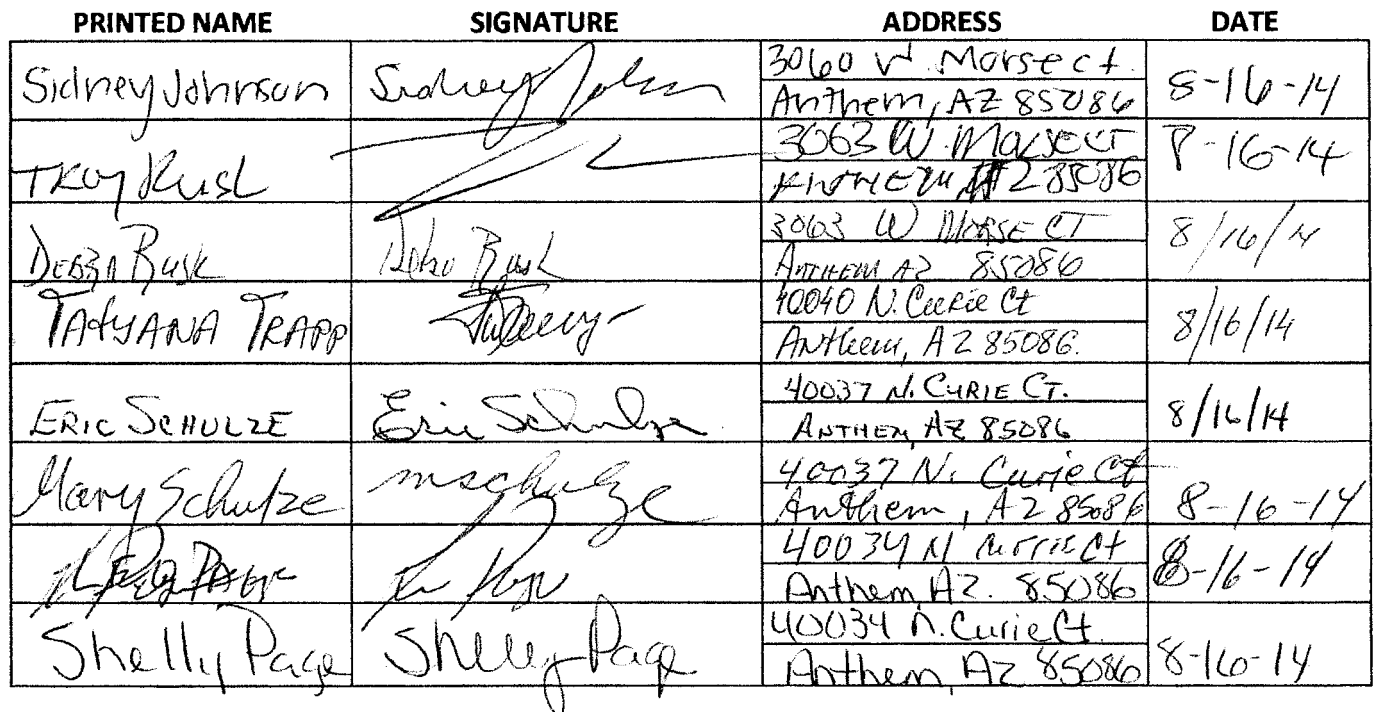 PRINTED NAME SIGNATURE ADDRESS DATE
Sidney Johnson Sidney Johnson 3060 W. Morse ct. 8-16-14
Anthem, AZ 85086
TROY RUSK 3063 W. Morse CT 8-16-14
ANTHEM AZ 85086
DEBRA RUSK Debra Rusk 3063 W MORSE CT 8/16/14
ANTHEM AZ 85086
TATYANA TRAPP 40040 N. Curie Ct 8/16/14
Anthem, AZ 85086.
ERIC SCHULZE Eric Schulze 40037 N. CURIE CT. 8/16/14
ANTHEM, AZ 85086
Mary Schulze mschulze 40037 N. Curie Ct 8-16-14
Anthem, AZ 85086
PAGE 40034 N Currie Ct 8-16-14
Anthem AZ. 85086
Shelly Page Shelly Page 40034 N. Curie Ct. 8-16-14
Anthem, AZ 85086